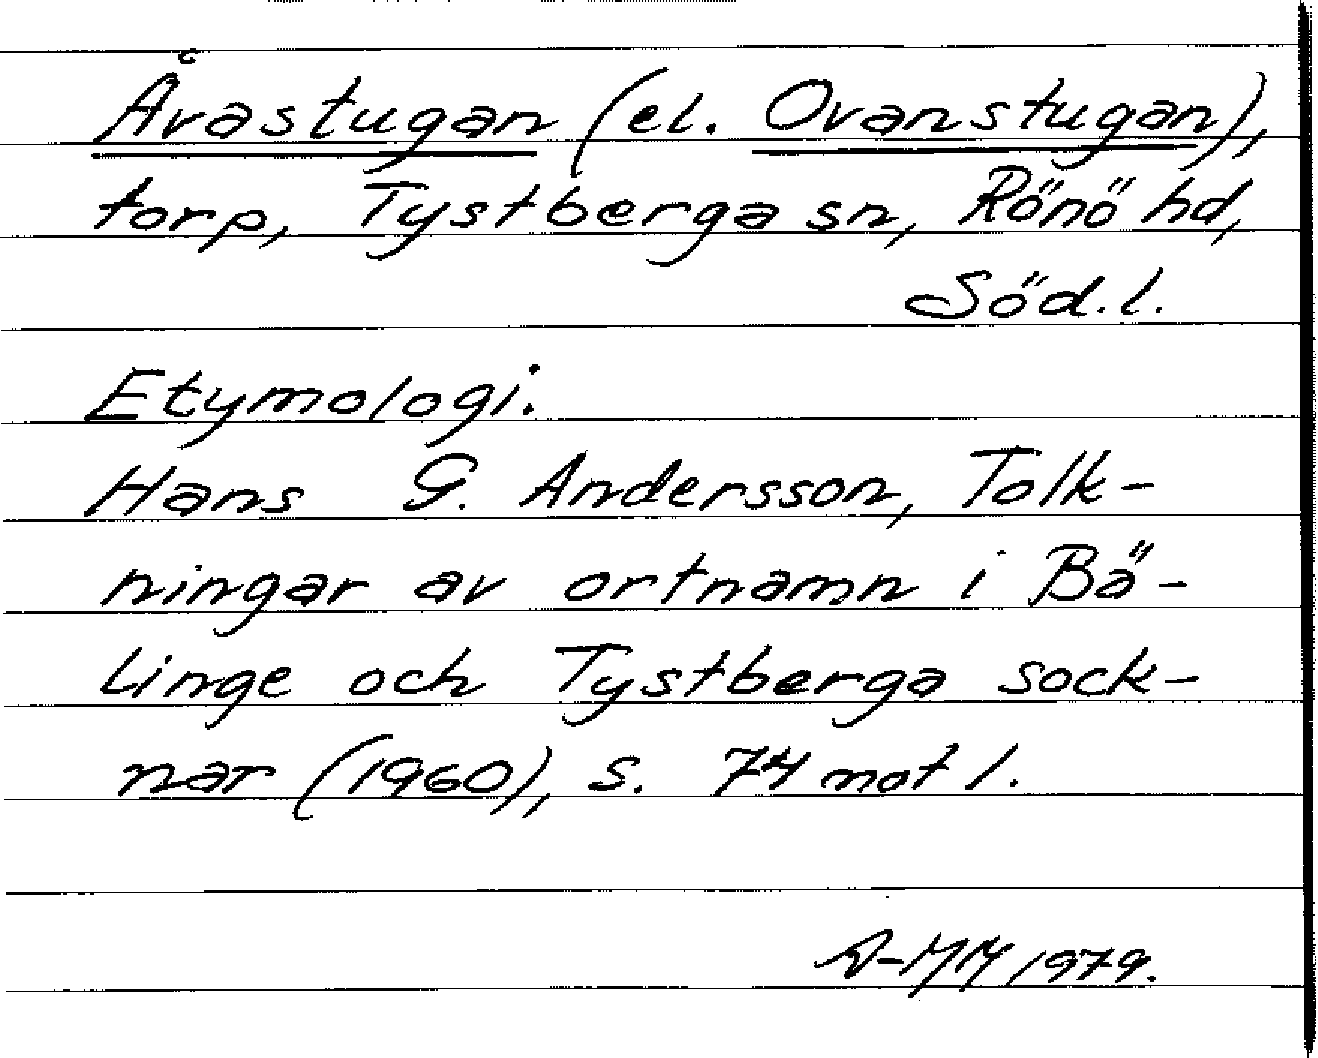 Åvastugan (el. Ovanstugan),
torp, Tystberga sn, Rönö hd,
Söd.l.
Etymologi:
Hans G. Andersson, Tolk-
ningar av ortnamn i Bä-
linge och Tystberga sock-
nar (1960), s. 74 not 1.
A-MM 1979.